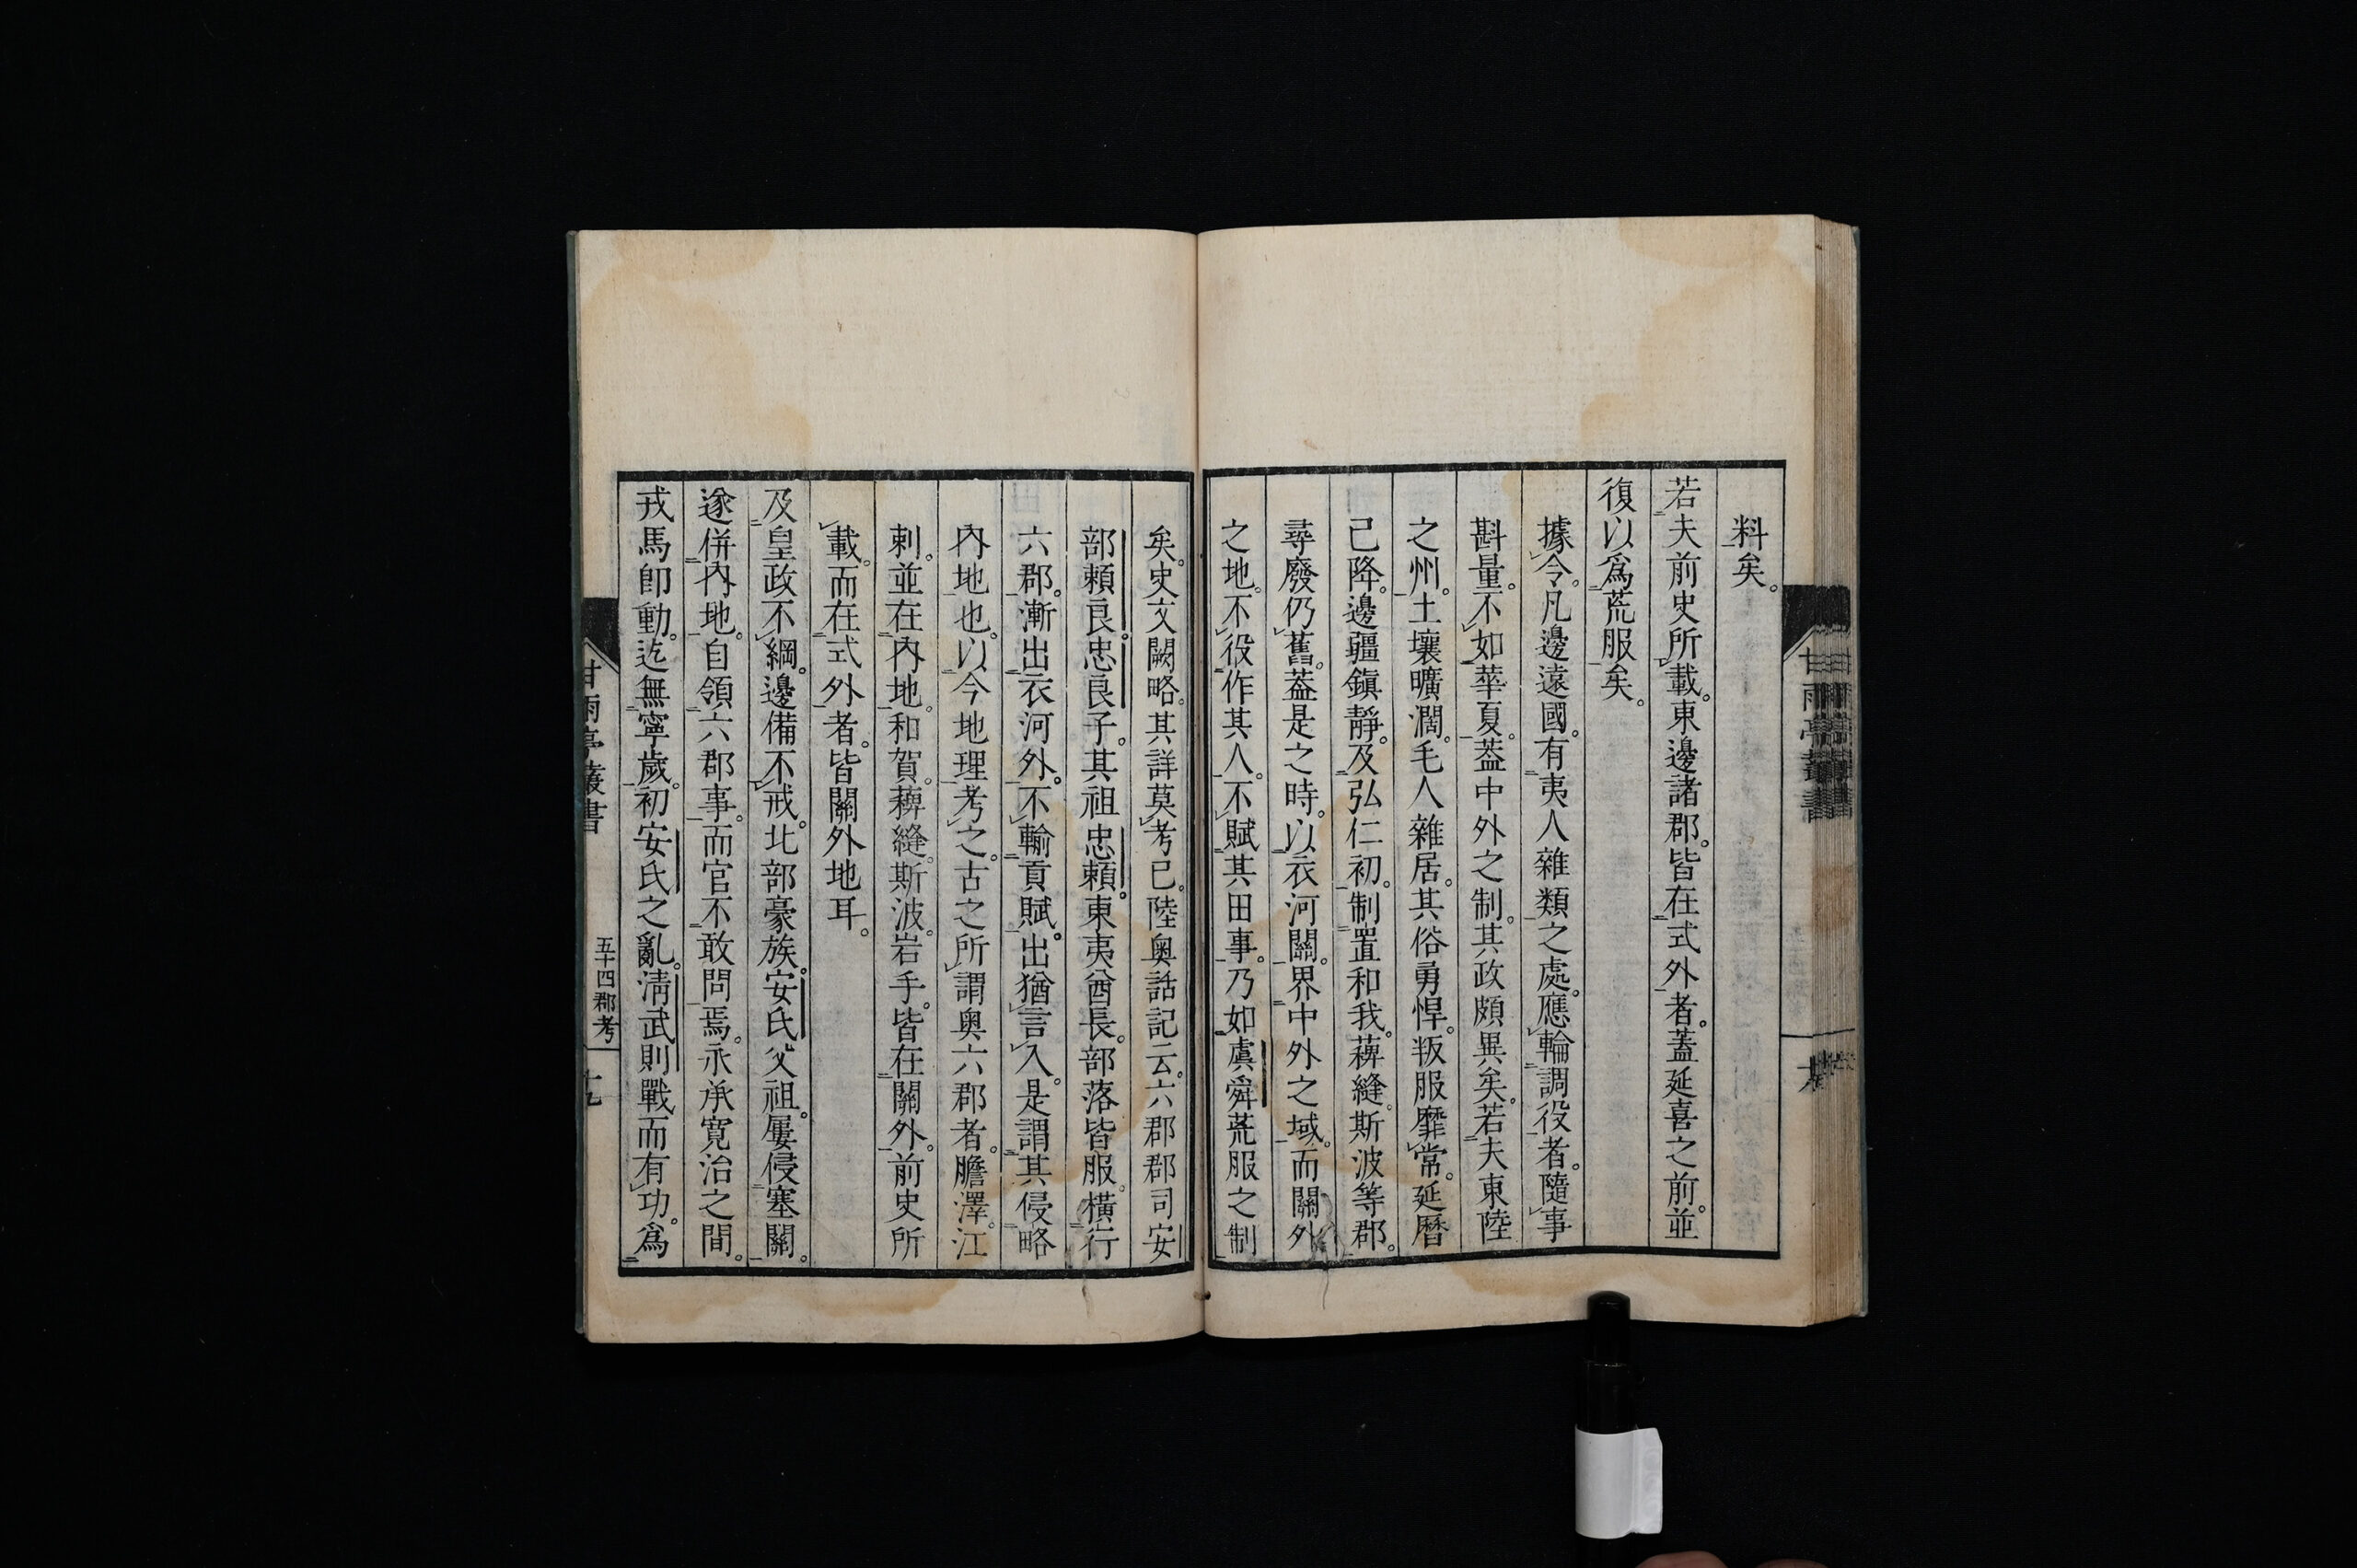 料矣。
若夫前史所載。東邊諸郡。皆在式外者。蓋延喜之前。並
復以爲荒服矣。
據令。凡邊遠國。有夷人雜類之處。應輸調役者。隨事
斟量。不如華夏。蓋中外之制。其政頗異矣。若夫東陸
之州。土壤曠濶。毛人雜居。其俗勇悍。叛服靡常。延曆
已降。邊疆鎭靜。及弘仁初。制置和我。薭縫。斯波等郡。
尋廢仍舊。蓋是之時。以衣河關。界中外之域。而關外
之地。不役作其人。不賦其田事。乃如虞舜荒服之制
矣。史文闕略。其詳莫考已。陸奧話記云。六郡郡司安
部賴良。忠良子。其祖忠賴。東夷酋長。部落皆服。橫行
六郡。漸出衣河外。不輸貢賦。出猶言入。是謂其侵略
內地也。以今地理考之。古之所謂奧六郡者。膽澤。江
刺。並在內地。和賀。薭縫。斯波。岩手。皆在關外。前史所
載。而在式外者。皆關外地耳。
及皇政不綱。邊備不戒。北部豪族。安氏父祖。屢侵塞關。
遂併內地。自領六郡事。而官不敢問焉。永承寬治之間。
戎馬卽動。迄無寧歲。初安氏之亂。淸武則戰而有功。爲
甘雨亭叢書
五十四郡考
十九
甘雨亭叢書